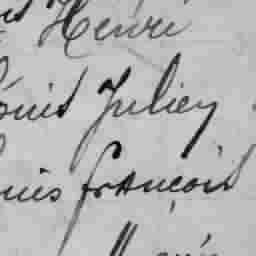 Henri
ouis Julien
ouis françois